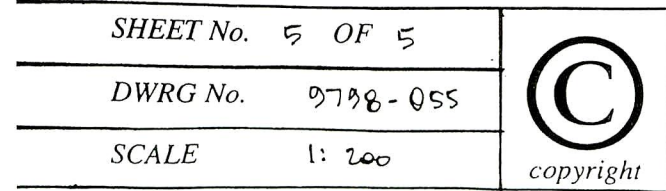 SHEET No. 5 OF 5
DWRG No. 9798-055
SCALE 1: 200
©
copyright